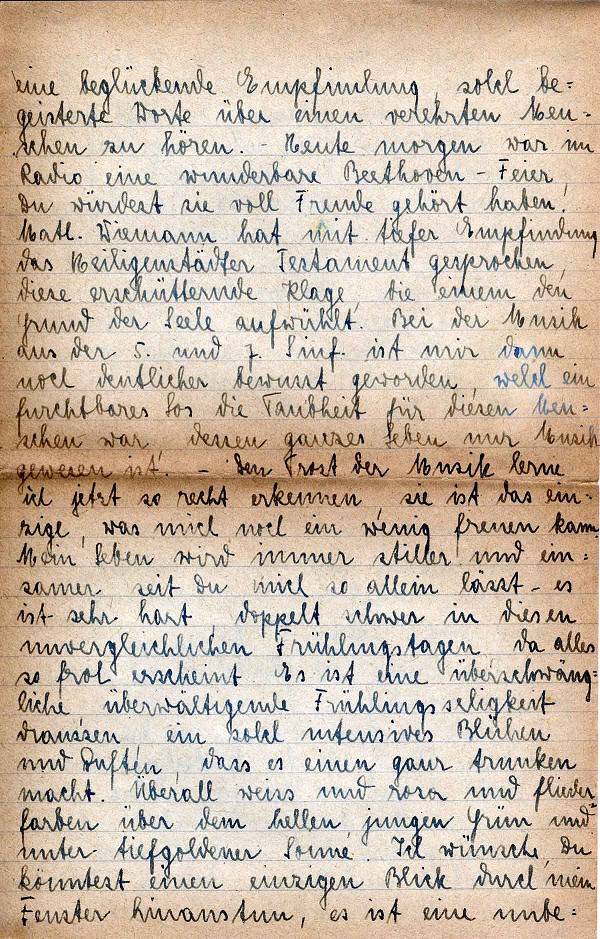 eine beglückende Empfindung, solch be=
geisterte Worte über einen verehrten Men=
schen zu hören. - Heute morgen war im
Radio eine wunderbare Beethoven - Feier,
Du würdest sie voll Freude gehört haben,
Math. Wiemann hat mit tiefer Empfindung
das Heiligenstädter Testament gesprochen,
diese erschütternde Klage, die einem den
Grund der Seele aufwühlt. Bei der Musik
aus der 5. und 7. Sinf. ist mir dann
noch deutlicher bewusst geworden, welch ein
furchtbares Los die Taubheit für diesen Men=
schen war, dessen ganzes Leben nur Musik
gewesen ist. - Den Trost der Musik lerne
ich jetzt so recht erkennen, sie ist das ein=
zige, was mich noch ein wenig freuen kann.
Mein Leben wird immer stiller und ein=
samer, seit Du mich so allein lässt - es
ist sehr hart, doppelt schwer in diesen
unvergleichlichen Frühlingstagen, da alles
so froh erscheint. Es ist eine überschwäng=
liche überwältigende Frühlingsseligkeit
draussen, ein solch intensives Blühen
und Duften, dass es einen ganz trunken
macht. Überall weiss und rosa und flieder=
farben über dem hellen, jungen Grün und
unter tiefgoldener Sonne. Ich wünsche, Du
könntest einen einzigen Blick durch mein
Fenster hinaustun, es ist eine unbe=